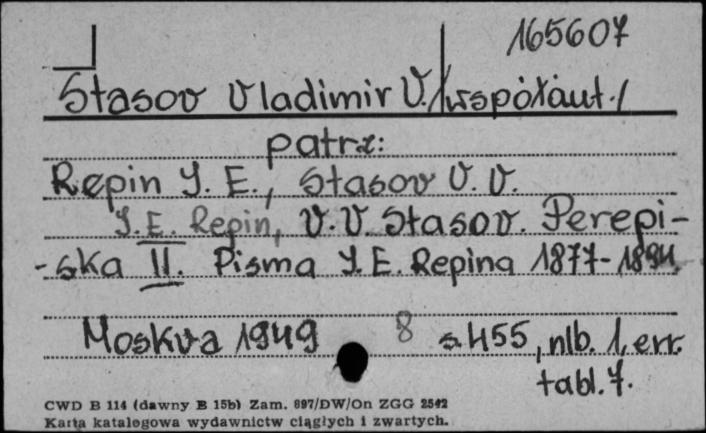 165607
Stasov Vladimir V. /współaut./
patrz:
Repin I. E., Stasov V. V.
I. E. Repin, V. V Stasov. Perepi-
-ska II. Pisma I. E. Repina 1877-1894.
Moskva 1949 8 s. 455, nlb. 1, err.
tabl. 7.
CWD B 114 (dawny B 15b) Zam. 697/DW/On ZGG 2542
Karta katalogowa wydawnictw ciągłych i zwartych.